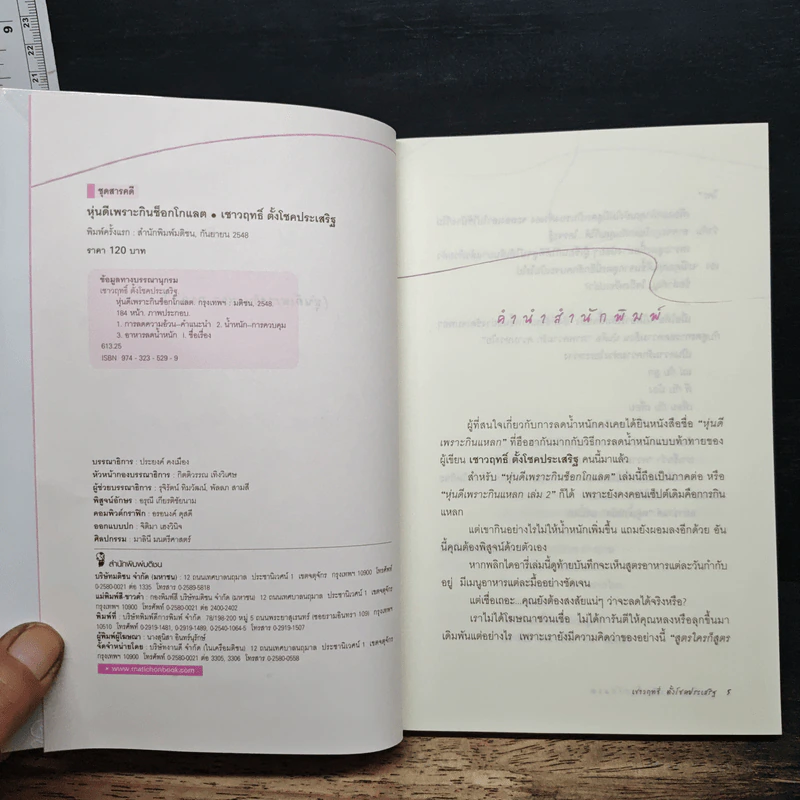 9
23
22
21
ชุดสารคดี
หุ่นดีเพราะกินช็อกโกแลต • เชาวฤทธิ์ ตั้งโชคประเสริฐ
พิมพ์ครั้งแรก : สำนักพิมพ์มติชน, กันยายน 2548
ราคา 120 บาท
ข้อมูลทางบรรณานุกรม
เชาวฤทธิ์ ตั้งโชคประเสริฐ.
หุ่นดีเพราะกินช็อกโกแลต. กรุงเทพฯ : มติชน, 2548.
184 หน้า. ภาพประกอบ.
1. การลดความอ้วน-คำแนะนำ 2. น้ำหนัก-การควบคุม
3. อาหารลดน้ำหนัก I. ชื่อเรื่อง
613.25
ISBN 974 - 323 - 529 - 9
บรรณาธิการ : ประยงค์ คงเมือง
หัวหน้ากองบรรณาธิการ : กิตติวรรณ เทิงวิเศษ
ผู้ช่วยบรรณาธิการ : รุจิรัตน์ ทิมวัฒน์, พัลลภ สามสี
พิสูจน์อักษร : อรุณี เกียรติชัยนาม
คอมพิวต์กราฟิก : อรอนงค์ คุสดี
ออกแบบปก : จิติมา เฮงวินิจ
ศิลปกรรม : มาลินี มนตรีศาสตร์
สำนักพิมพ์มติชน
บริษัทมติชน จำกัด (มหาชน) : 12 ถนนเทศบาลนฤมาล ประชานิเวศน์ 1 เขตจตุจักร กรุงเทพฯ 10900 โทรศัพท์
0-2580-0021 ต่อ 1235 โทรสาร 0-2589-5818
แม่พิมพ์สี-ขาวดำ : กองพิมพ์สี บริษัทมติชน จำกัด (มหาชน) 12 ถนนเทศบาลนฤมาล ประชานิเวศน์ 1 เขตจตุจักร
กรุงเทพฯ 10900 โทรศัพท์ 0-2580-0021 ต่อ 2400-2402
พิมพ์ที่ : บริษัทพิมพ์ดีการพิมพ์ จำกัด 78/198-200 หมู่ 5 ถนนพระยาสุเรนทร์ (ซอยรามอินทรา 109) กรุงเทพฯ
10510 โทรศัพท์ 0-2919-1481, 0-2919-1489, 0-2540-1064-5 โทรสาร 0-2919-1507
ผู้พิมพ์ผู้โฆษณา : นางสุนิสา อินทร์นุรักษ์
จัดจำหน่ายโดย : บริษัทงานดี จำกัด (ในเครือมติชน) 12 ถนนเทศบาลนฤมาล ประชานิเวศน์ 1 เขตจตุจักร
กรุงเทพฯ 10900 โทรศัพท์ 0-2580-0021 ต่อ 3305, 3306 โทรสาร 0-2580-0558
www.matichonbook.com
คำนำสำนักพิมพ์
ผู้ที่สนใจเกี่ยวกับการลดน้ำหนักคงเคยได้ยินหนังสือชื่อ "หุ่นดี
เพราะกินแหลก" ที่ฮือฮากันมากกับวิธีการลดน้ำหนักแบบท้าทายของ
ผู้เขียน เชาวฤทธิ์ ตั้งโชคประเสริฐ คนนี้มาแล้ว
สำหรับ "หุ่นดีเพราะกินช็อกโกแลต" เล่มนี้ถือเป็นภาคต่อ หรือ
"หุ่นดีเพราะกินแหลก เล่ม 2" ก็ได้ เพราะยังคงคอนเซ็ปต์เดิมคือการกิน
แหลก
แต่เขากินอย่างไรไม่ให้น้ำหนักเพิ่มขึ้น แถมยังผอมลงอีกด้วย อัน
นี้คุณต้องพิสูจน์ด้วยตัวเอง
หากพลิกไดอารี่เล่มนี้ดูท้ายบันทึกจะเห็นสูตรอาหารแต่ละวันกำกับ
อยู่ มีเมนูอาหารแต่ละมื้ออย่างชัดเจน
แต่เชื่อเถอะ...คุณยังต้องสงสัยแน่ๆ ว่าจะลดได้จริงหรือ?
เราไม่ได้โฆษณาชวนเชื่อ ไม่ได้การันตีให้คุณหลงหรือลุกขึ้นมา
เดิมพันแต่อย่างไร เพราะเรายังมีความคิดว่าของอย่างนี้ "สูตรใครก็สูตร
เชาวฤทธิ์ ตั้งโชคประเสริฐ 5